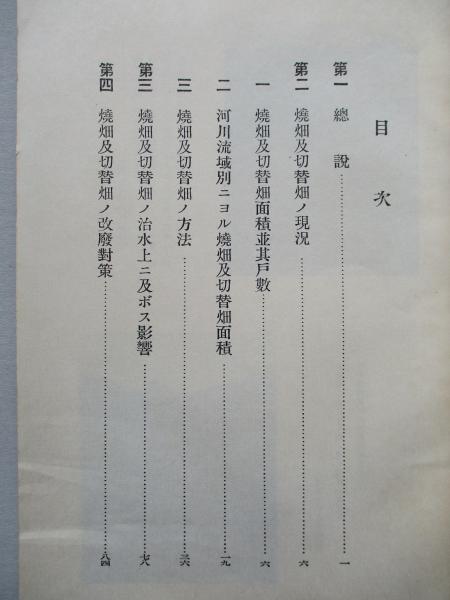 目次
第一 總說……一
第二 燒畑及切替畑ノ現況……六
一 燒畑及切替畑面積並其戶數……六
二 河川流域別ニヨル燒畑及切替畑面積……一九
三 燒畑及切替畑ノ方法……三六
第三 燒畑及切替畑ノ治水上ニ及ボス影響……七八
第四 燒畑及切替畑ノ改廢對策……八四